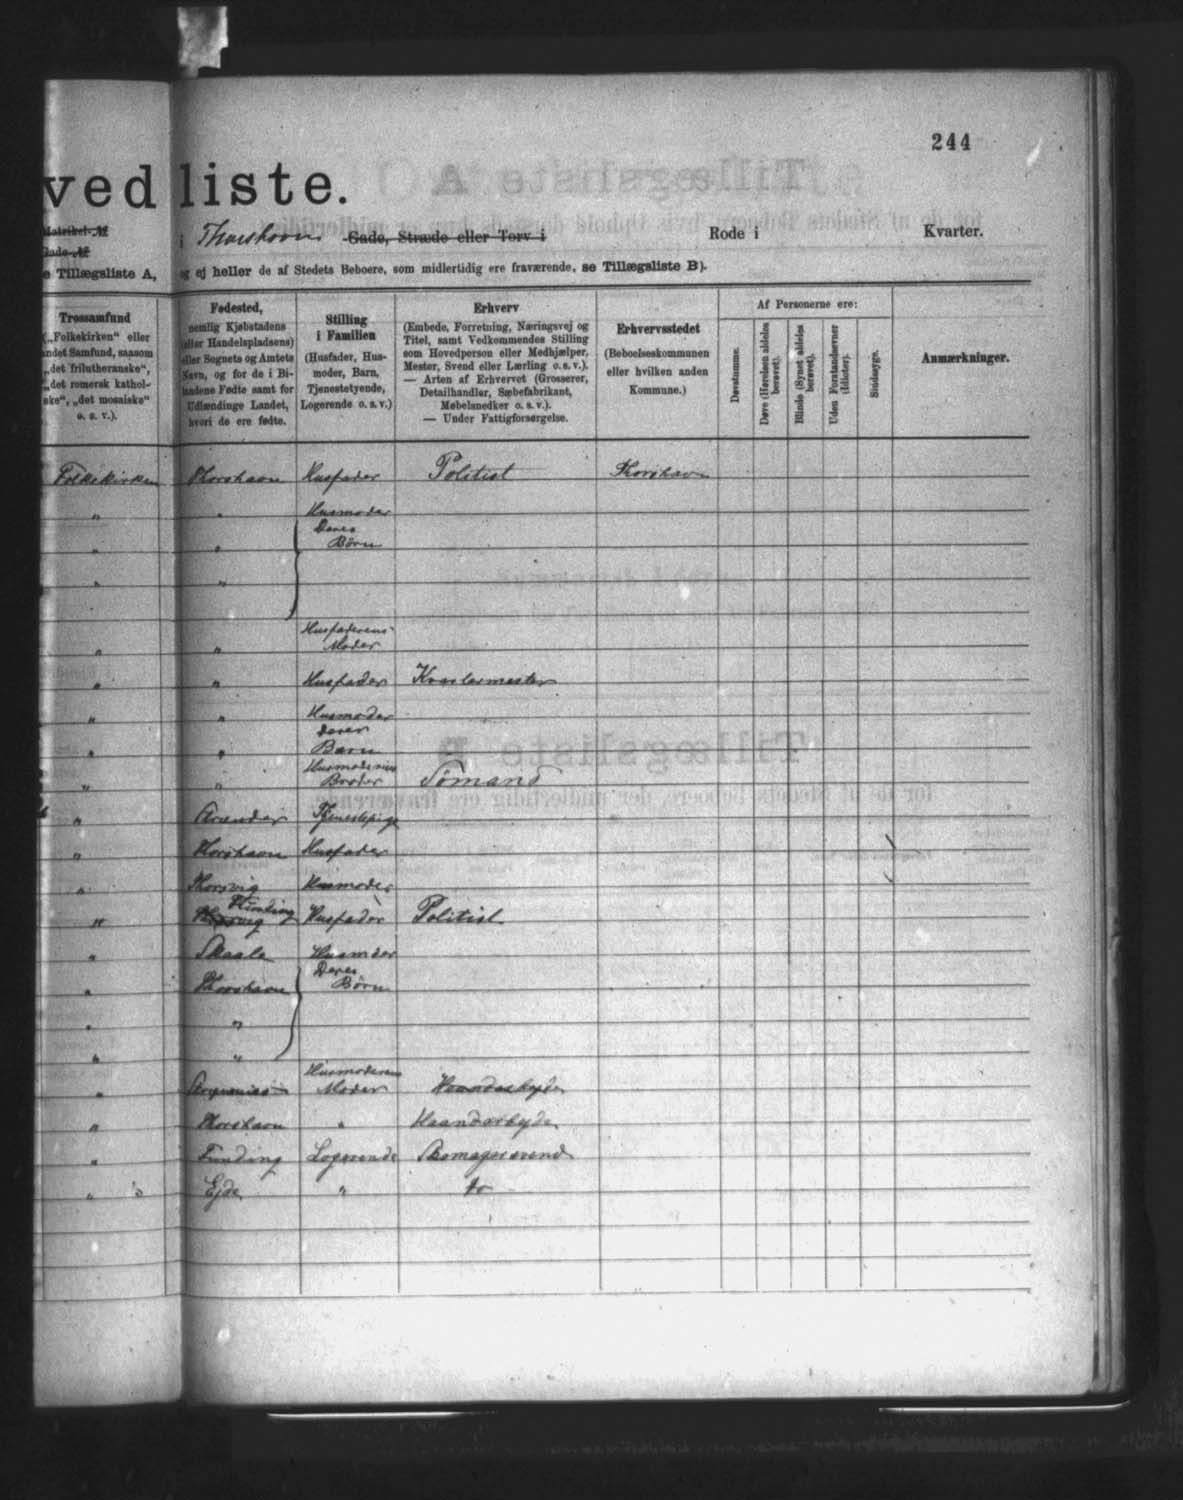 244
ved liste.
Matrikel-№
Gade-№
i Thorshavn Gade, Stræde eller Torv i Rode i Kvarter.
e Tillægsliste A, og ej heller de af Stedets Beboere, som midlertidig ere fraværende, se Tillægsliste B).
Trossamfund
(„Folkekirken“ eller
andet Samfund, saasom
„det frilutheranske“,
„det romersk kathol-
ske“, „det mosaiske“
o. s. v.).
Fødested,
nemlig Kjøbstadens
(eller Handelspladsens)
eller Sognets og Amtets
Navn, og for de i Bi-
landene Fødte samt for
Udlændinge Landet,
hvori de ere fødte.
Stilling
i Familien
(Husfader, Hus-
moder, Barn,
Tjenestetyende,
Logerende o.s.v.)
Erhverv
(Embede, Forretning, Næringsvej og
Titel, samt Vedkommendes Stilling
som Hovedperson eller Medhjælper,
Mester, Svend eller Lærling o.s.v.).
— Arten af Erhvervet (Grosserer,
Detailhandler, Sæbefabrikant,
Møbelsnedker o. s. v.).
— Under Fattigforsørgelse.
Erhvervsstedet
(Beboelseskommunen
eller hvilken anden
Kommune.)
Af Personerne ere:
Døvstumme.
Døve (Hørelsen aldeles
berøvet).
Blinde (Synet aldeles
berøvet).
Uden Forstandsevner
(Idioter).
Sindssyge.
Anmærkninger.
Folkekirken Thorshavn Husfader Politist Thorshavn
" " Husmoder
" " Deres
Børn
" "
" " Husfaderens
Moder
" " Husfader
" " Husmoder
" " deres
Barn
" " Husmoderens
Broder Sømand
" Tjenestepige
" Thorshavn Husfader
" Thorsvig Husmoder
" Thorsvig Funding Husfader Politist
" Skaale Husmoder
" Thorshavn Deres
Børn
" "
" "
" Husmoderens
Moder Haandarbejde
" Thorshavn " Haandarbejde
" Funding Logerende
" Ejde " do